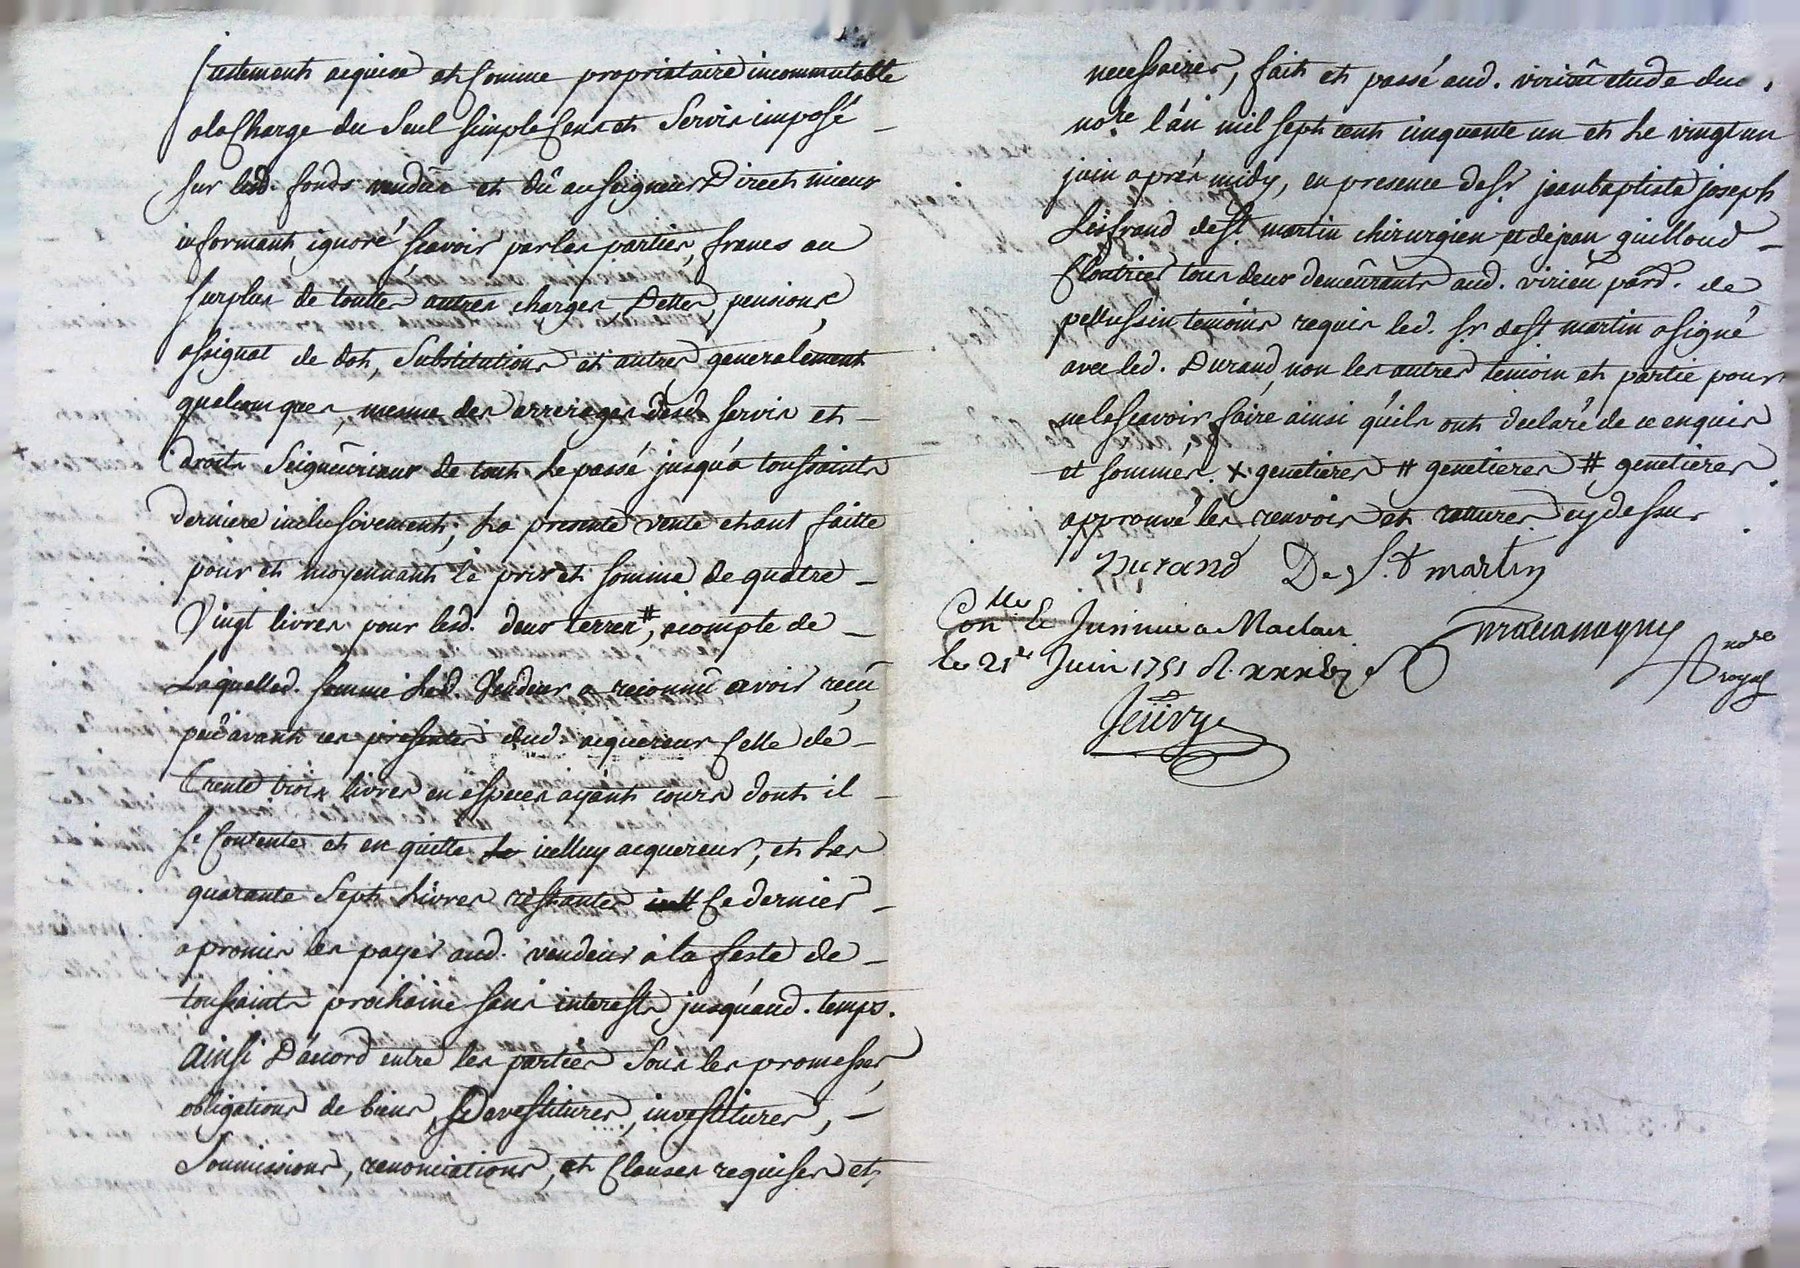 justement acquise et comme propriataire incommutable
a la Charge du Seul simple Cens et Servis imposé
sur lesd. fonds vendus et dû au seigneur Direct mieux
informant, ignoré sçavoir par les parties, francs au
surplus de touttes autres charges Dettes, pensions,
assignat de dot, Substitutions et autres generalement
quelconques, mesme des arrerages desd. servis et
droits Seigneuriaux de tout le passé jusqu'a toussaints
derniere inclusivement; La presente vente etant faitte
pour et moyennant le prix et somme de quatre
Vingt livres pour lesd. deux terres #, acompte de
Laquelled. somme led. Vendeur a reconnu avoir reçu
par avant ces presentes dud. acquereur Celle de
Trente trois livres en espèces ayant cours dont il
se Contente et en quitte icelluy acquereur, et Les
quarante Sept Livres restantes Ce dernier
a promis les payer aud. vendeur a la feste de
toussaints prochaine sans interest jusqu'aud. temps.
ainsi D'accord entre les parties sous les promesses,
obligations de biens, Devestitures, investitures,
Soumissions, renonciations, et Clauses requises et
necessaires, fait et passé aud. virieu etude du
nore. l'an mil sept cent cinquante un et Le vingt un
juin aprés midy, en presence de Sr. jean baptiste joseph
de St. martin chirurgien et de jean guilloud
Cloutrier tous deux demeurants aud. virieu pard. de
pellussin temoins requis led. Sr. de St. martin a signé
avec led. Durand, non les autres temoin et partie pour
ne le sçavoir faire ainsi qu'ils ont declaré de ce enquis
et sommés. X genetieres # genetieres # genetieres
approuvé les renvois et ratures cy dessus
Durand De St martin
Conllé &amp; Insinué a Maclas
le 21e Juin 1751 R. nore
royal